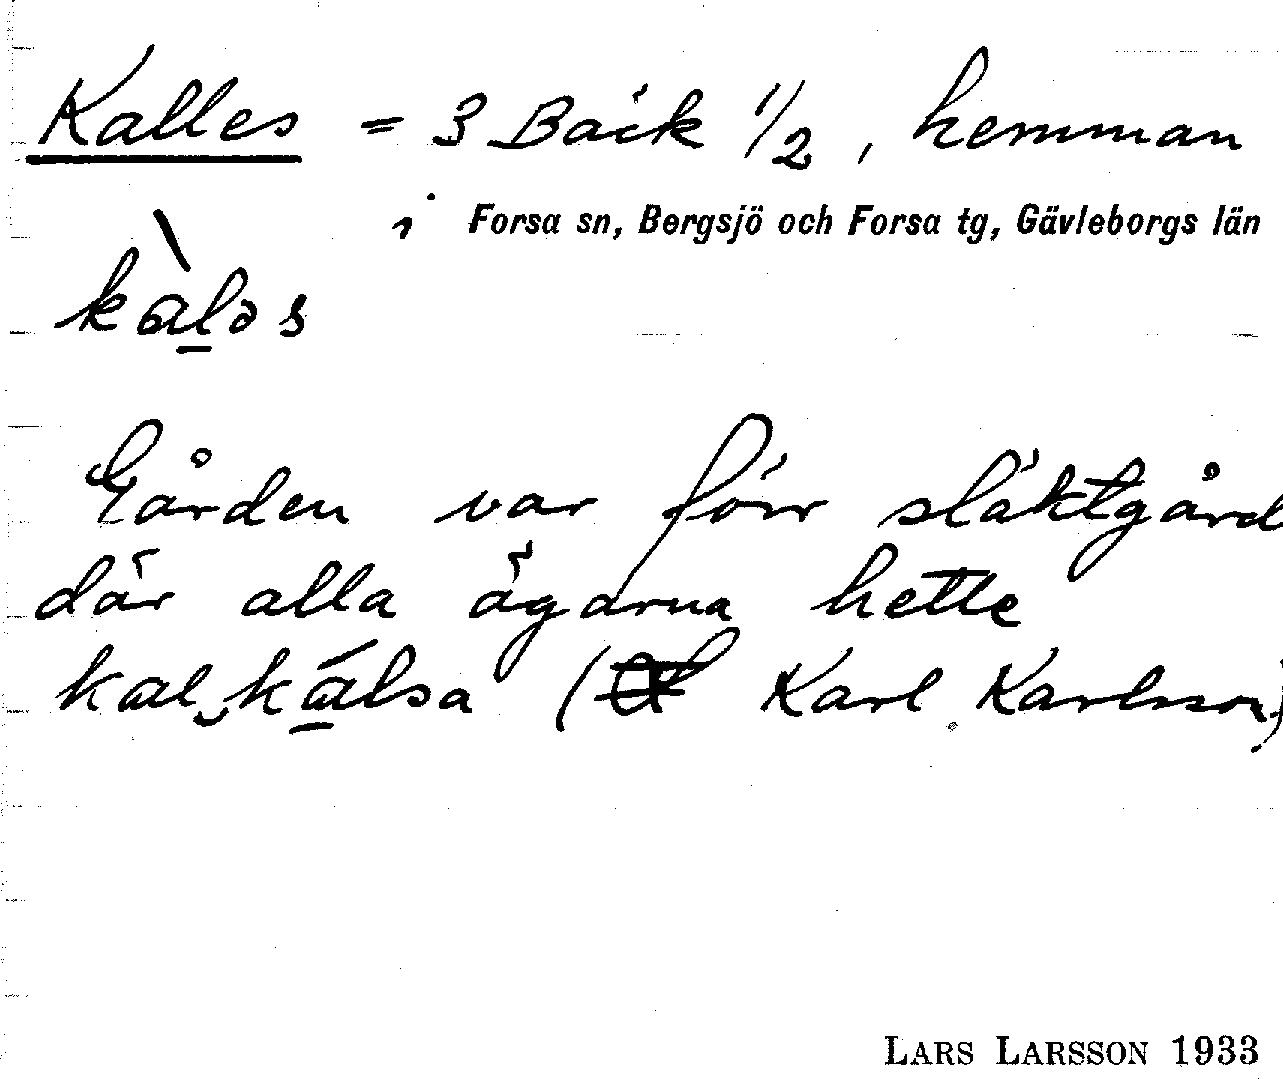 Kalles = 3 Bäck 1/2, hemman
i Forsa sn, Bergsjö och Forsa tg, Gävleborgs län
kàləs
Gården var förr släktgård
där alla ägarna hette
kal‿kálsa ( Karl Karlsson)
LARS LARSSON 1933